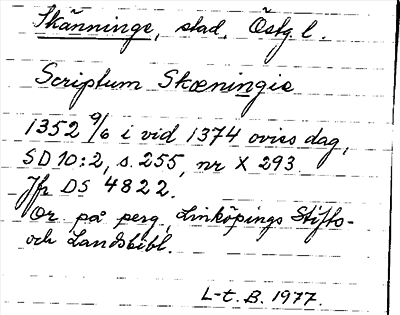 Skänninge, stad. Östg. l.
Scriptum Skæningie
1352 9/6 i vid 1374 ovics dag,
SD 10:2, s. 255, nr X 293.
Jfr DS 4822.
Or. på perg. Linköpings Stifts-
och Landsbibl.
L-t. B. 1977.